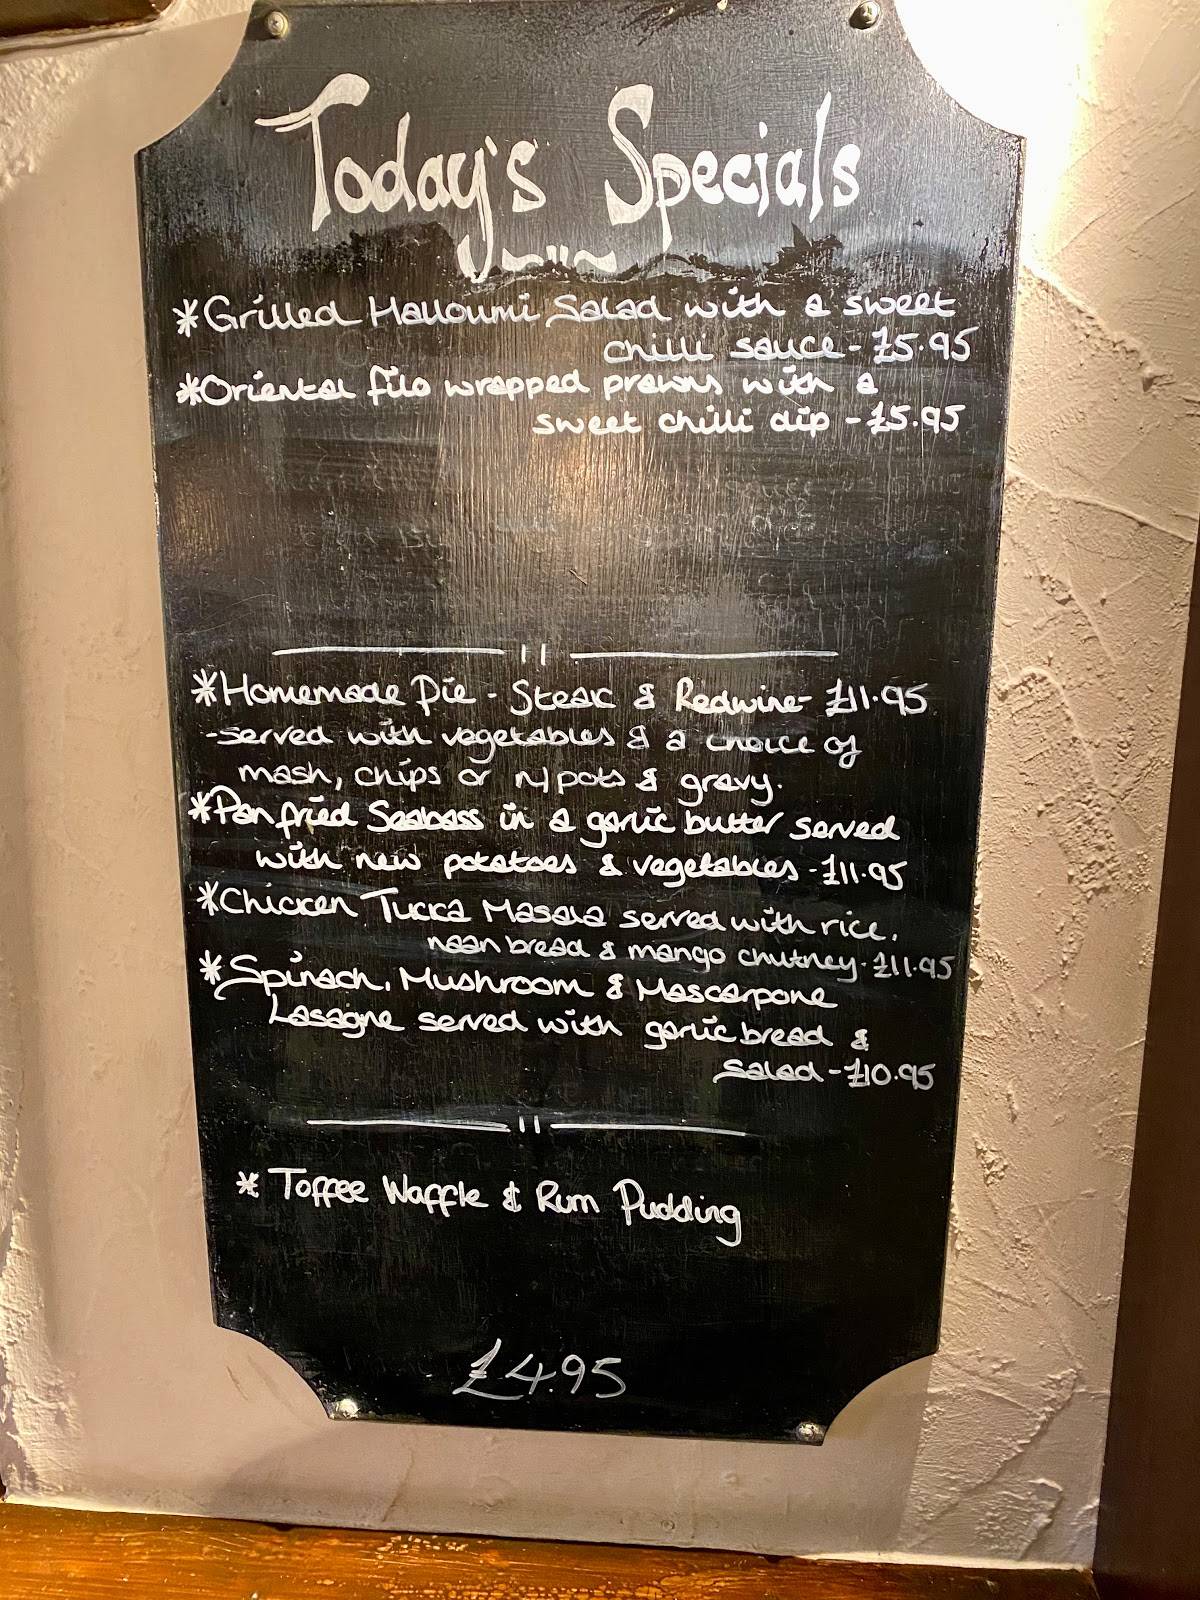 Today's Specials
*Grilled Halloumi Salad with a sweet
chilli sauce - £5.95
*Oriental filo wrapped prawns with a
sweet chilli dip - £5.95
*Homemade Pie - Steak & Redwine - £11.95
-served with vegetables & a choice of
mash, chips or n/pots & gravy.
*Panfried Seabass in a garlic butter served
with new potatoes & vegetables - £11.95
*Chicken Tucka Masala served with rice,
naan bread & mango chutney - £11.95
*Spinach, Mushroom & Mascarpone
Lasagne served with garlic bread &
Salad - £10.95
* Toffee Waffle & Rum Pudding
£4.95